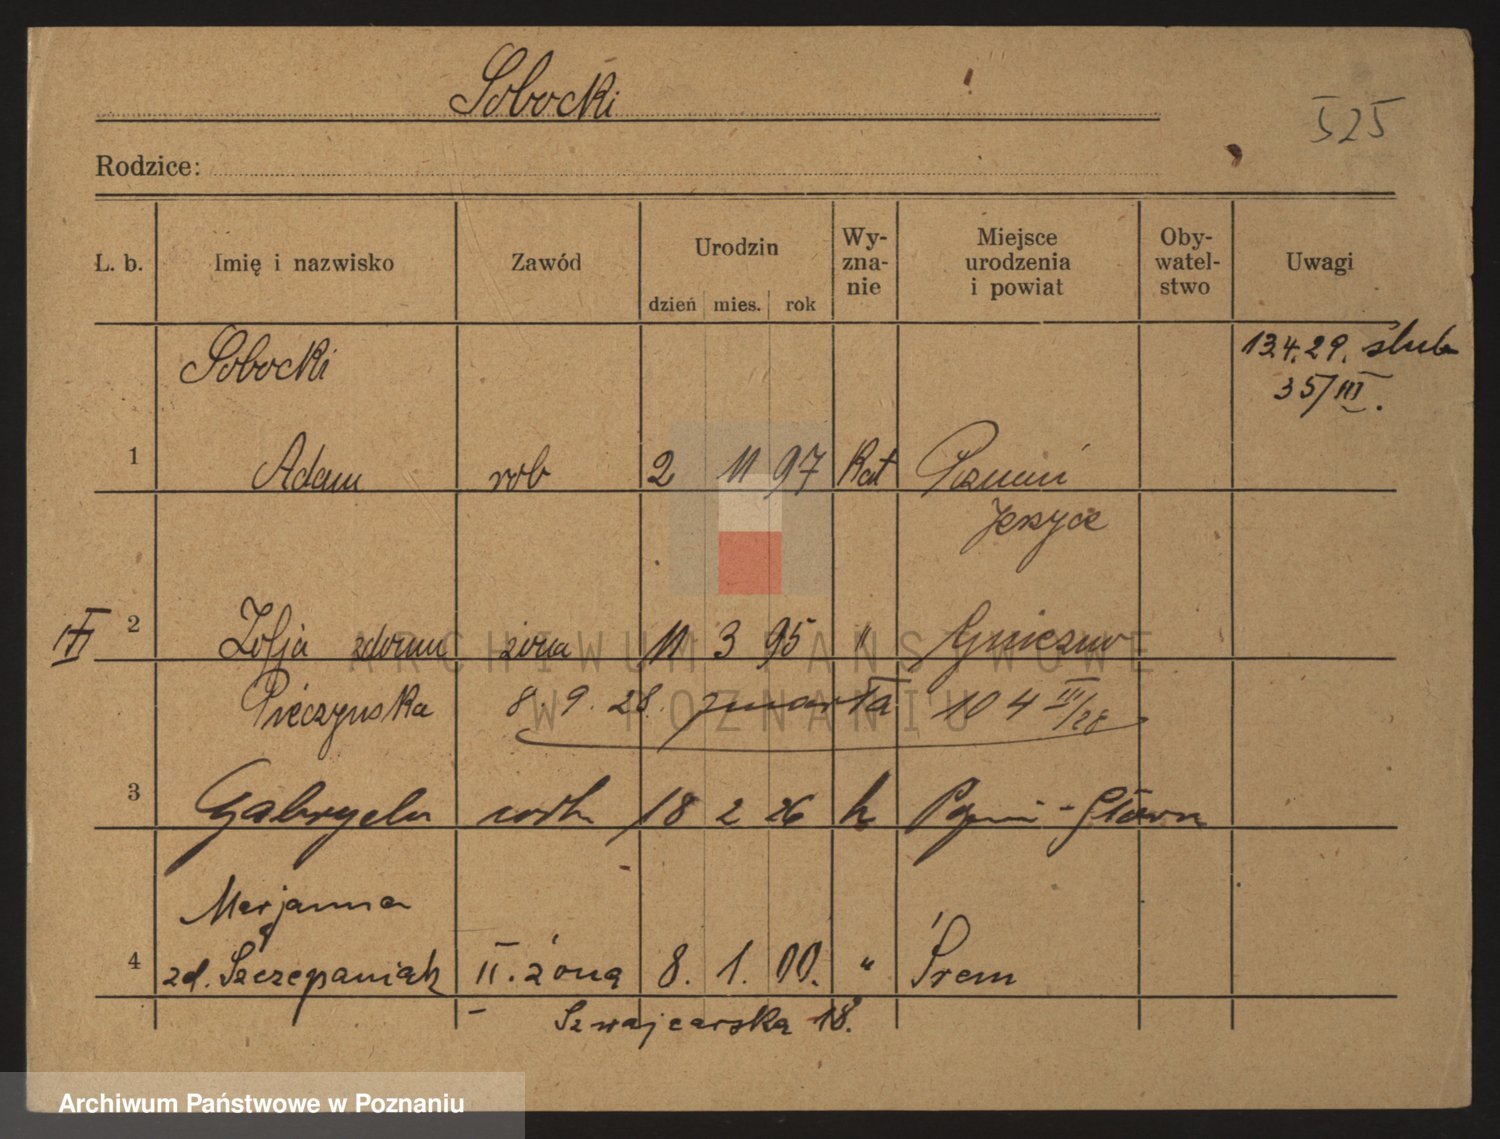 Sobocki
525
Rodzice:
L. b. Imię i nazwisko Zawód Urodzin dzień mies. rok Wy-zna-nie Miejsce urodzenia i powiat Oby-watel-stwo Uwagi
Sobocki 13.4.29. ślub
35/III.
1 Adam rob 2 11 97 Kat Poznań
Jeżyce
2 Zofja zdomu żona 11 3 95 " Gniezno
Pieczynska 8.9.28. zmarła 104 III/28
3 Gabryela córka 18 2 26 k Pozn - Główna
Marjanna
4 zd. Szczepaniak II. żona 8. 1. 00. " Śrem
Szwajcarska 18.
ARCHIWUM PAŃSTWOWE
W POZNANIU
Archiwum Państwowe w Poznaniu